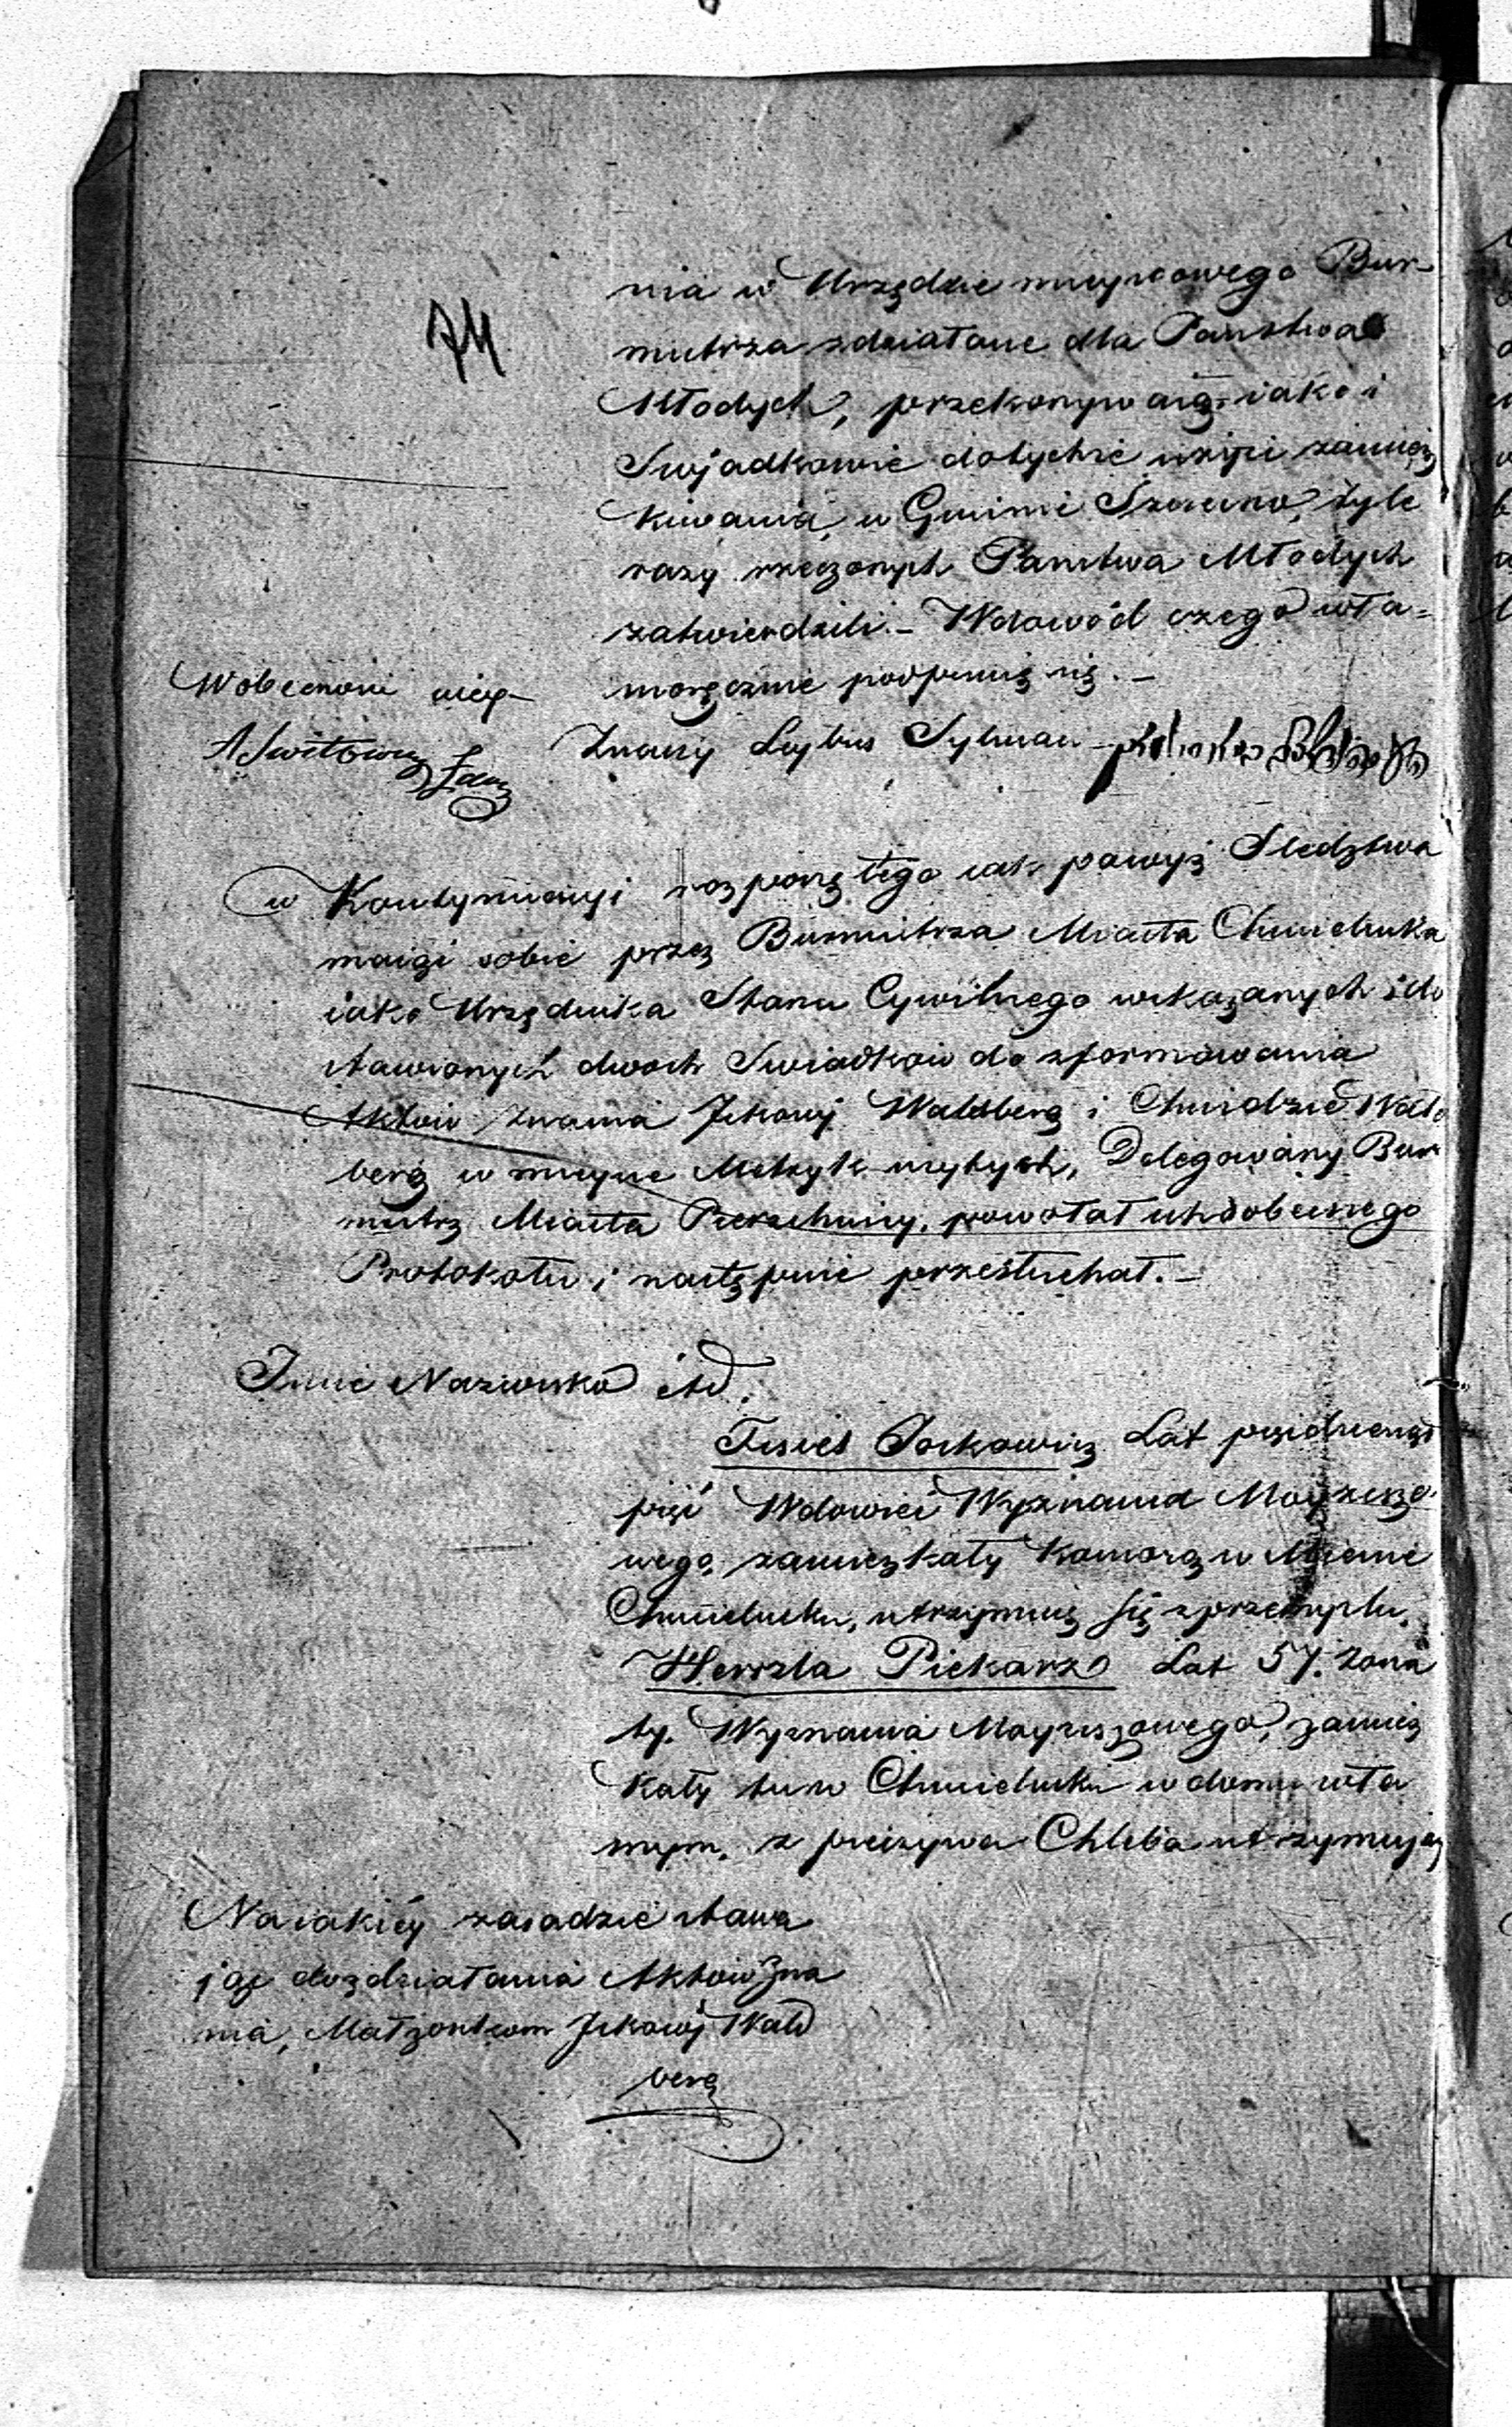 74
nia w Urzędzie mieyscowego Bur-
mistrza zdziałane dla Państwa
Młodych, przekonywaią iako i
Swjadkowie dotychże użyci zamiesz
kiwania, w Gminie Szczecno, tyle
razy rzeczonych Państwa Młodych
zatwierdzili. – Wdowód czego wła-
snoręcznie podpisuię się. –
Wobecności
Znaący Leybus Sylman
w Kontynuacyi rozpoczętego iak powyż Sledztwa
maiąc sobie przez Burmistrza Miasta Chmielnika
iako Urzędnika Stanu Cywilnego wskazanych i do
stawionych dwoch Swiadków do zformowania
Aktów Znania Jckowj Waldberg i Chwidzie Wald
berg w mieysce Metryk użytych, Delegowany Bur
mistrz Miasta Pierzchnicy, powołał ich do obecnego
Protokołu i następnie przesłuchał. –
Imie Nazwisko itd.
Fisiel Jockowicz Lat pięćdziesiąt
pięć Wdowiec Wyznania Moyżeszo
wego, zamieszkały Komorą w Miescie
Chmielniku, utrzymuię się z przemysłu,
Herszla Piekarz Lat 57. Żona
ty. Wyznania Moyżeszowego, zamiesz
kały tu w Chmielniku w domu wła
snym, z pieczywa Chleba utrzymujący
Na iakiéy zasadzie stawa
jąc do zdziałania Aktów Zna
nia, Małżonkom Jckowj Wald
berg